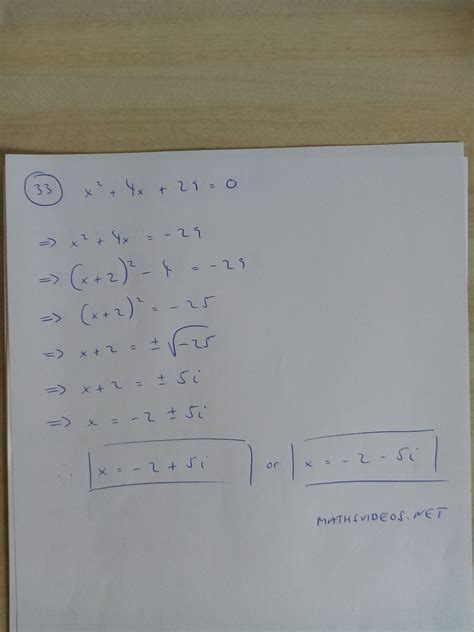 33 x² + 4x + 29 = 0
⇒ x² + 4x = -29
⇒ (x+2)² - 4 = -29
⇒ (x+2)² = -25
⇒ x+2 = ±√-25
⇒ x+2 = ± 5i
⇒ x = -2 ± 5i
∴ x = -2 + 5i or x = -2 - 5i
MATHSVIDEOS.NET